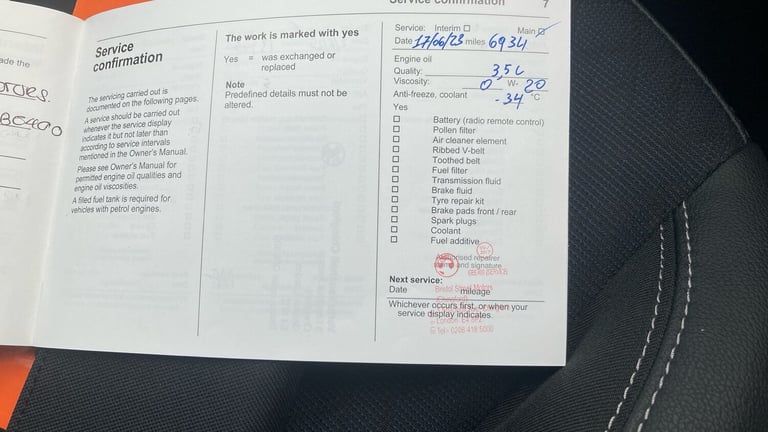 Service confirmation
7
ade the
Service
confirmation
The servicing carried out is
documented on the following pages.
A service should be carried out
whenever the service display
indicates it but not later than
according to service intervals
mentioned in the Owner's Manual.
Please see Owner's Manual for
permitted engine oil qualities and
engine oil viscosities.
A filled fuel tank is required for
vehicles with petrol engines.
The work is marked with yes
Yes = was exchanged or
replaced
Note
Predefined details must not be
altered.
Service: Interim Main
Date 17/06/23 miles 6934
Engine oil
Quality: 3,5L
Viscosity: 0 W- 20
Anti-freeze, coolant -34 °C
Yes
Battery (radio remote control)
Pollen filter
Air cleaner element
Ribbed V-belt
Toothed belt
Fuel filter
Transmission fluid
Brake fluid
Tyre repair kit
Brake pads front / rear
Spark plugs
Coolant
Fuel additive
Authorised repairer
stamp and signature
Next service:
Bristol Street Motors
Date mileage
Whichever occurs first, or when your
service display indicates.
London E4 8
Tel - 0208 418 5000